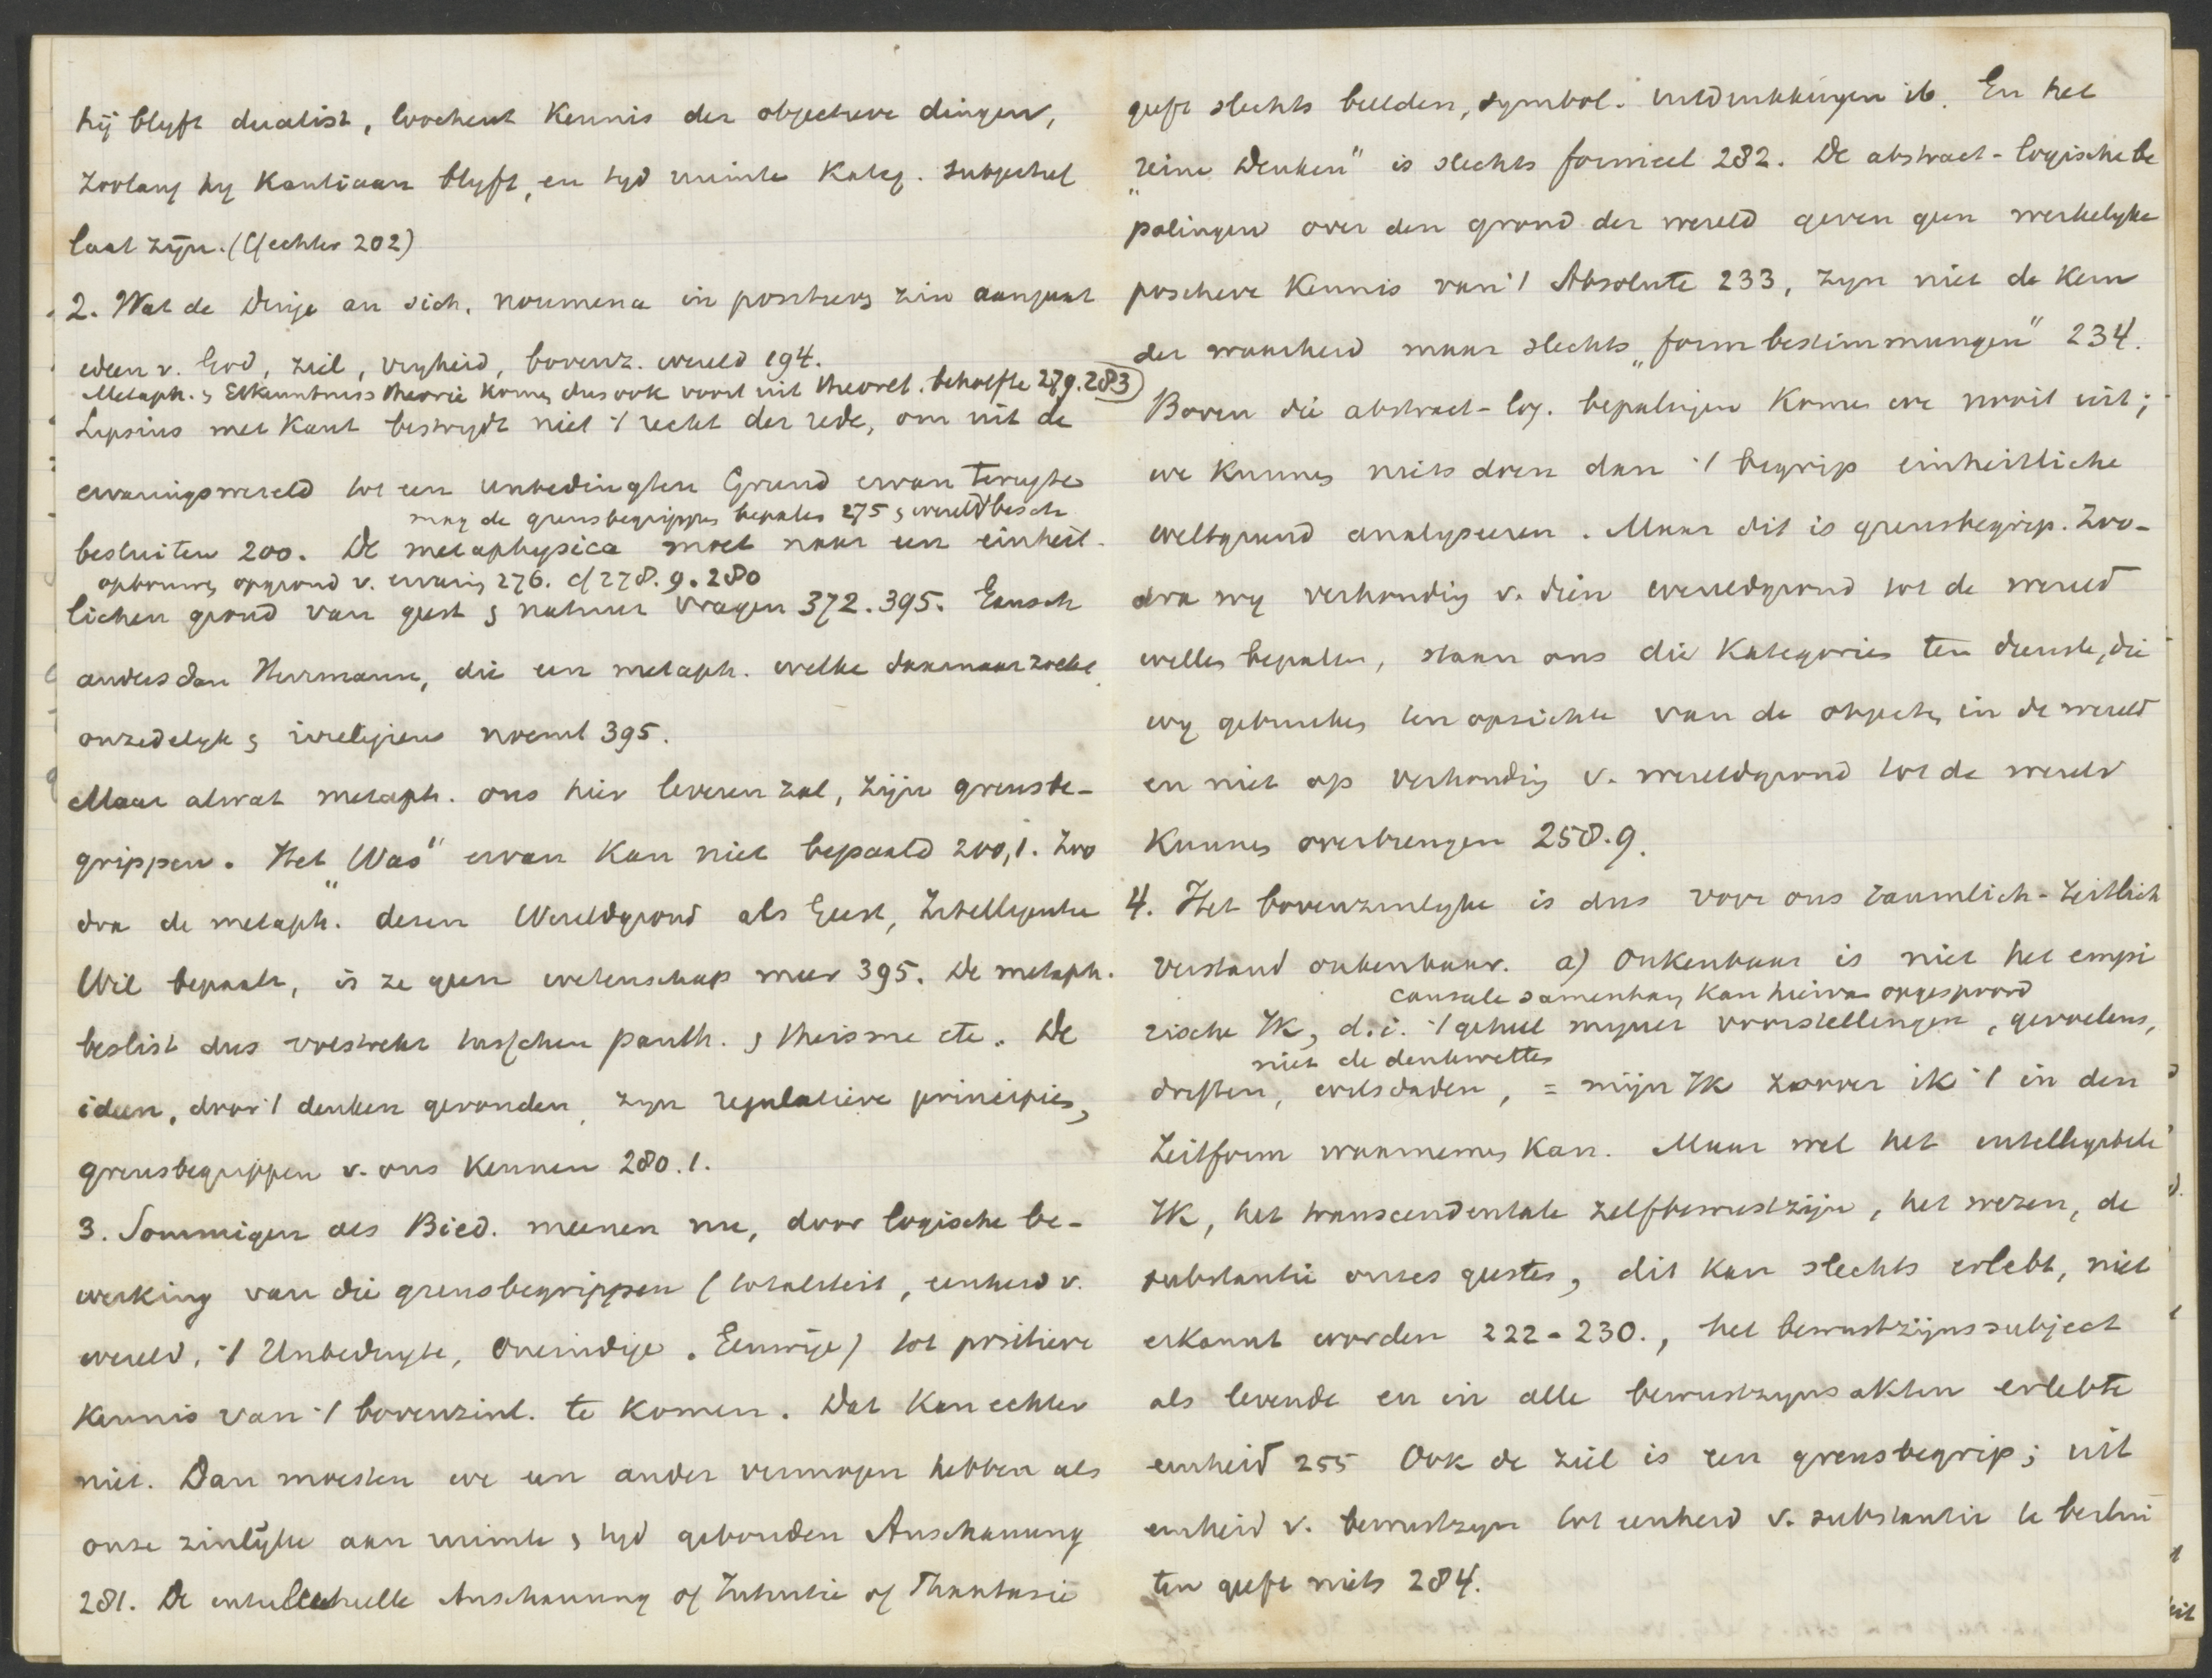 hij blyft dualist, loochent Kennis der objectieve dingen,
zoolang hy Kantiaan blyft, en tyd ruimte Kateg. subjectief
laat zijn. (Cf echter 202)
2. Wat de Dinge an sich, noumena in positieven zin aangaat
ideen v. God, ziel, vryheid, bovenz. wereld 194.
Metaph. & Erkenntniss theorie komen dus ook voort uit theoret. behoefte 279.283
Lipsius met Kant bestrydt niet 't recht der rede, om uit de
ervaringswereld tot een unbedingten Grund ervan terugte
besluiten 200. De metaphysica moet naar een einheit-
mag de grensbegrippen bepalen 275 & wereldbesch
opbouwen opgrond v. ervaring 276. cf 278.9.280
lichen grond van geest & natuur vragen 372.395. Gansch
anders dan Herrmann, die een metaph. welke daarnaar zoekt
onzedelyk & irreligieus noemt 395.
Maar alwat metaph. ons hier leveren zal, zijn grensbe-
grippen. Het „Was" ervan kan niet bepaald 200,1. Zoo
dra de metaph. dezen Wereldgrond als Geest, Intelligentie
Wil bepaalt, is ze geen wetenschap meer 395. De metaph.
beslist dus volstrekt tusschen panth. & theisme etc. De
ideen, door 't denken gevonden, zyn regulatieve principies,
grensbegrippen v. ons kennen 280.1.
3. Sommigen als Bied. meenen nu, door logische be-
werking van die grensbegrippen (totaliteit, eenheid v.
wereld, 't Unbedingte, Oneindige, Eeuwige) tot positieve
Kennis van 't bovenzinl. te komen. Dat kan echter
niet. Dan moesten we een ander vermogen hebben als
onze zinlijke aan ruimte & tyd gebonden Anschauung
281. De intellectuelle Anschauung of Intuitie of Phantasie
geeft slechts beelden, symbol. uitdrukkingen ib. En het
„reine Denken" is slechts formeel 282. De abstract-logische be
palingen over den grond der wereld geven geen werkelyke
positieve Kennis van 't Absolute 233, zyn niet de Kern
der waarheid maar slechts „formbestimmungen" 234.
Boven die abstract-log. bepalingen komen we nooit uit;
we kunnen niets doen dan 't begrip einheitliche
weltgrund analyseeren. Maar dit is grensbegrip. Zoo-
dra wy verhouding v. dien wereldgrond tot de wereld
willen bepalen, staan ons die Kategorien ten dienste, die
wy gebruiken ten opzichte van de objecten in de wereld
en niet op verhouding v. wereldgrond tot de wereld
Kunnen overbrengen 258.9.
4. Het bovenzinlyke is dus voor ons raumlich-zeitlich
verstand onkenbaar. a) Onkenbaar is niet het empi
causale samenhang kan hiervan opgespoord
rische Ik, d.i. 't geheel myner voorstellingen, gevoelens,
niet de denkwetten
driften, wilsdaden, = mijn Ik zoover ik 't in den
Zeitform waarnemen kan. Maar wel het intelligibele
Ik, het transcendentale zelfbewustzijn, het wezen, de
substantie onzes geestes, dit kan slechts erlebt, niet
erkannt worden 222-230., het bewustzijnssubject
als levende en in alle bewustzyns akten erlebte
eenheid 255 Ook de ziel is een grensbegrip; uit
eenheid v. bewustzyn tot eenheid v. substantie te beslui
ten geeft niets 284.